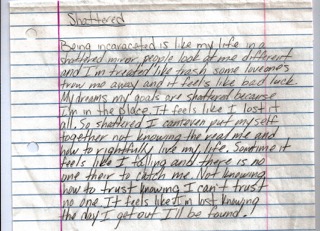 Shattered
Being incaraceted is like my life in a
shattered mirror, people look at me different
and I'm treated like trash some loveones
trow me away and it feels like bad luck.
My dreams my goals are shattered because
I'm in the place. It feels like I lost it
all. So shattered I canteven put myself
together not knowing the real me and
how to rightfully live my life. Sometime it
feels like I falling and there is no
one their to catch me. Not knowing
how to trust knowing I can't trust
no one. It feels like I'm lost knowing
the day I get out I'll be found!